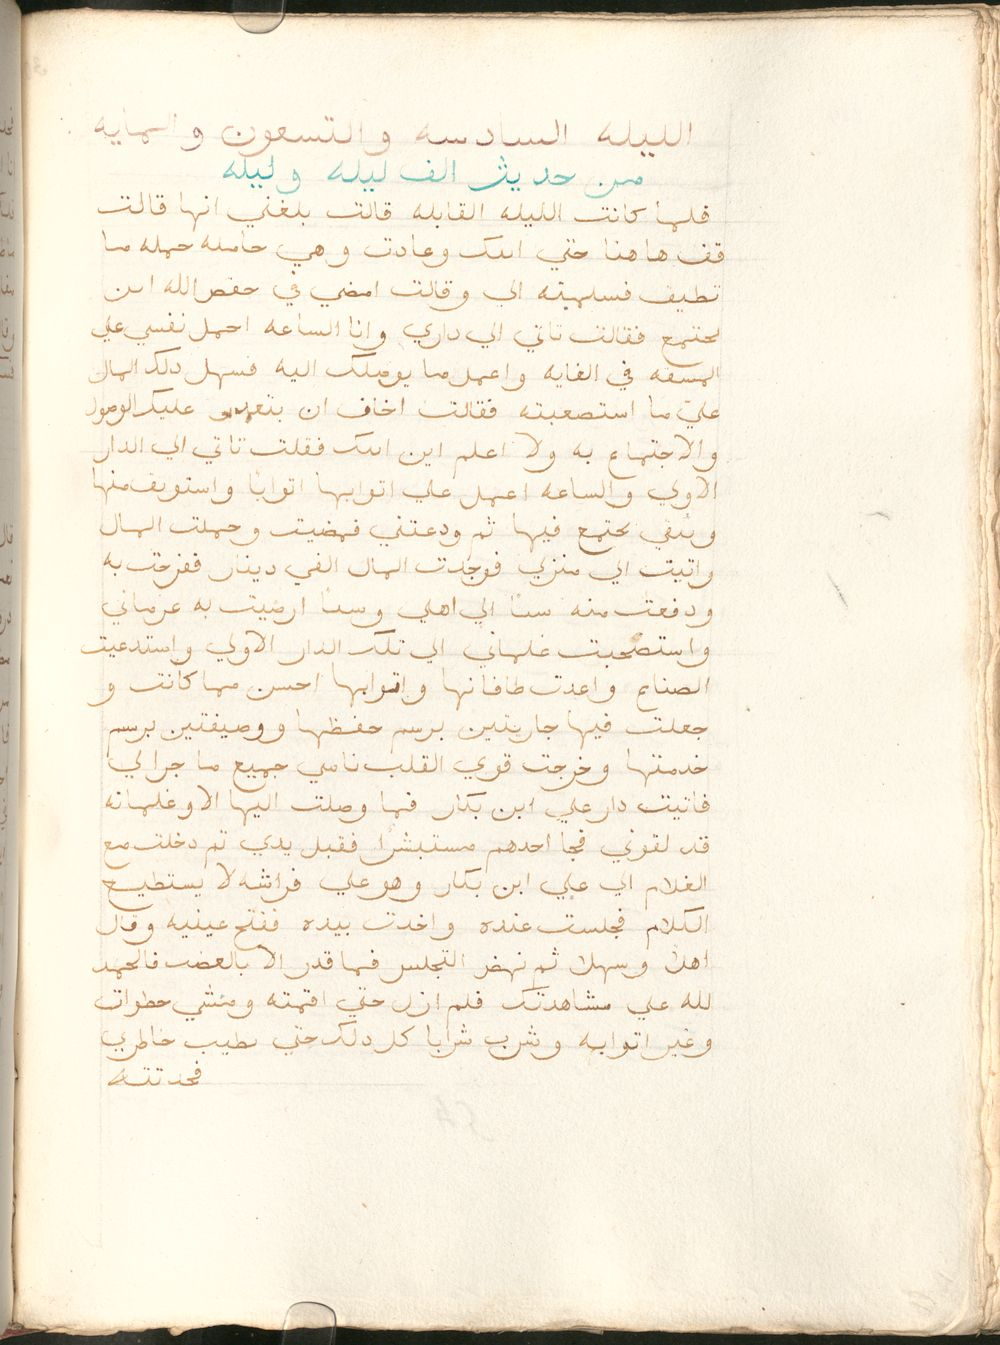 الليله السادسه والتسعون والمايه
من حديث الف ليله وليله
فلما كانت الليله القابله قالت بلغني انها قالت
قف هاهنا حتي اتيك وعادت وهي حامله حمله ما
تطيق فسلمته الي وقالت امضي في حفض الله اين
نجتمع فقالت تاتي الي داري وانا الساعه احمل نفسي علي
المسقه في الغايه واعمل ما يوصلك اليه فسهل دلك المال
علي ما استصعبته فقالت اخاف ان يتعدى عليك الوصول
والاجتماع به ولا اعلم اين اتيك فقلت تاتي الي الدار
الاولي والساعه اعمل علي اتوابها اتوابًا واستوتف منها
ونبقي نجتمع فيها ثم ودعتني فمضيت وحملت المال
واتيت الي منزلي فوجدت المال الفي دينار ففرحت به
ودفعت منه سيئًا الي اهلي وسيئًا ارضيت به غرماني
واستصحبت غلماني الي تلك الدار الاولي واستدعيت
الصناع واعدت طاقاتها واتوابها احسن مما كانت و
جعلت فيها جاريتين برسم حفظها ووصيفتين برسم
خدمتها وخرجت قوي القلب ناسي جميع ما جرا لي
فاتيت دار علي ابن بكار فما وصلت اليها الا وغلمانه
قد لقوني فجا احدهم مستبشرًا فقبل يدي تم دخلت مع
الغلام الي علي ابن بكار وهو علي فراشه لا يستطيع
الكلام فجلست عنده واخدت بيده ففتح عينيه وقال
اهلا وسهلا ثم نهض التجلس فما قدر الا بالعضب فالحمد
لله علي مشاهدتك فلم ازل حتي اقمته ومشي خطوات
وغير اتوابه وشرب شرابا كل دلك حتي نطيب خاطري
فحدتته